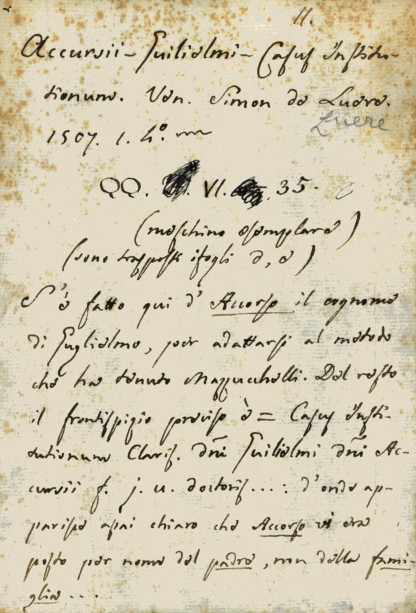 11.
Accursii - Guilielmi - Casus Institu-
tionum. Ven. Simon de Luere.
Luere
1507. 1. h°. m
QQ. VI. 35.
(meschino esemplare)
(sono trasposti i fogli d, e)
S'è fatto qui d'Accorso il cognome
di Guglielmo, per adattarsi al metodo
che ha tenuto Mazzuchelli. Del resto
il frontispizio preciso è = Casus Insti-
tutionum Claris. dñi Guilielmi dñi Ac-
cursii f. j. u. doctoris...: d'onde ap-
parisce assai chiaro che Accorso vi era
posto per nome del padre, non della fami-
glia...